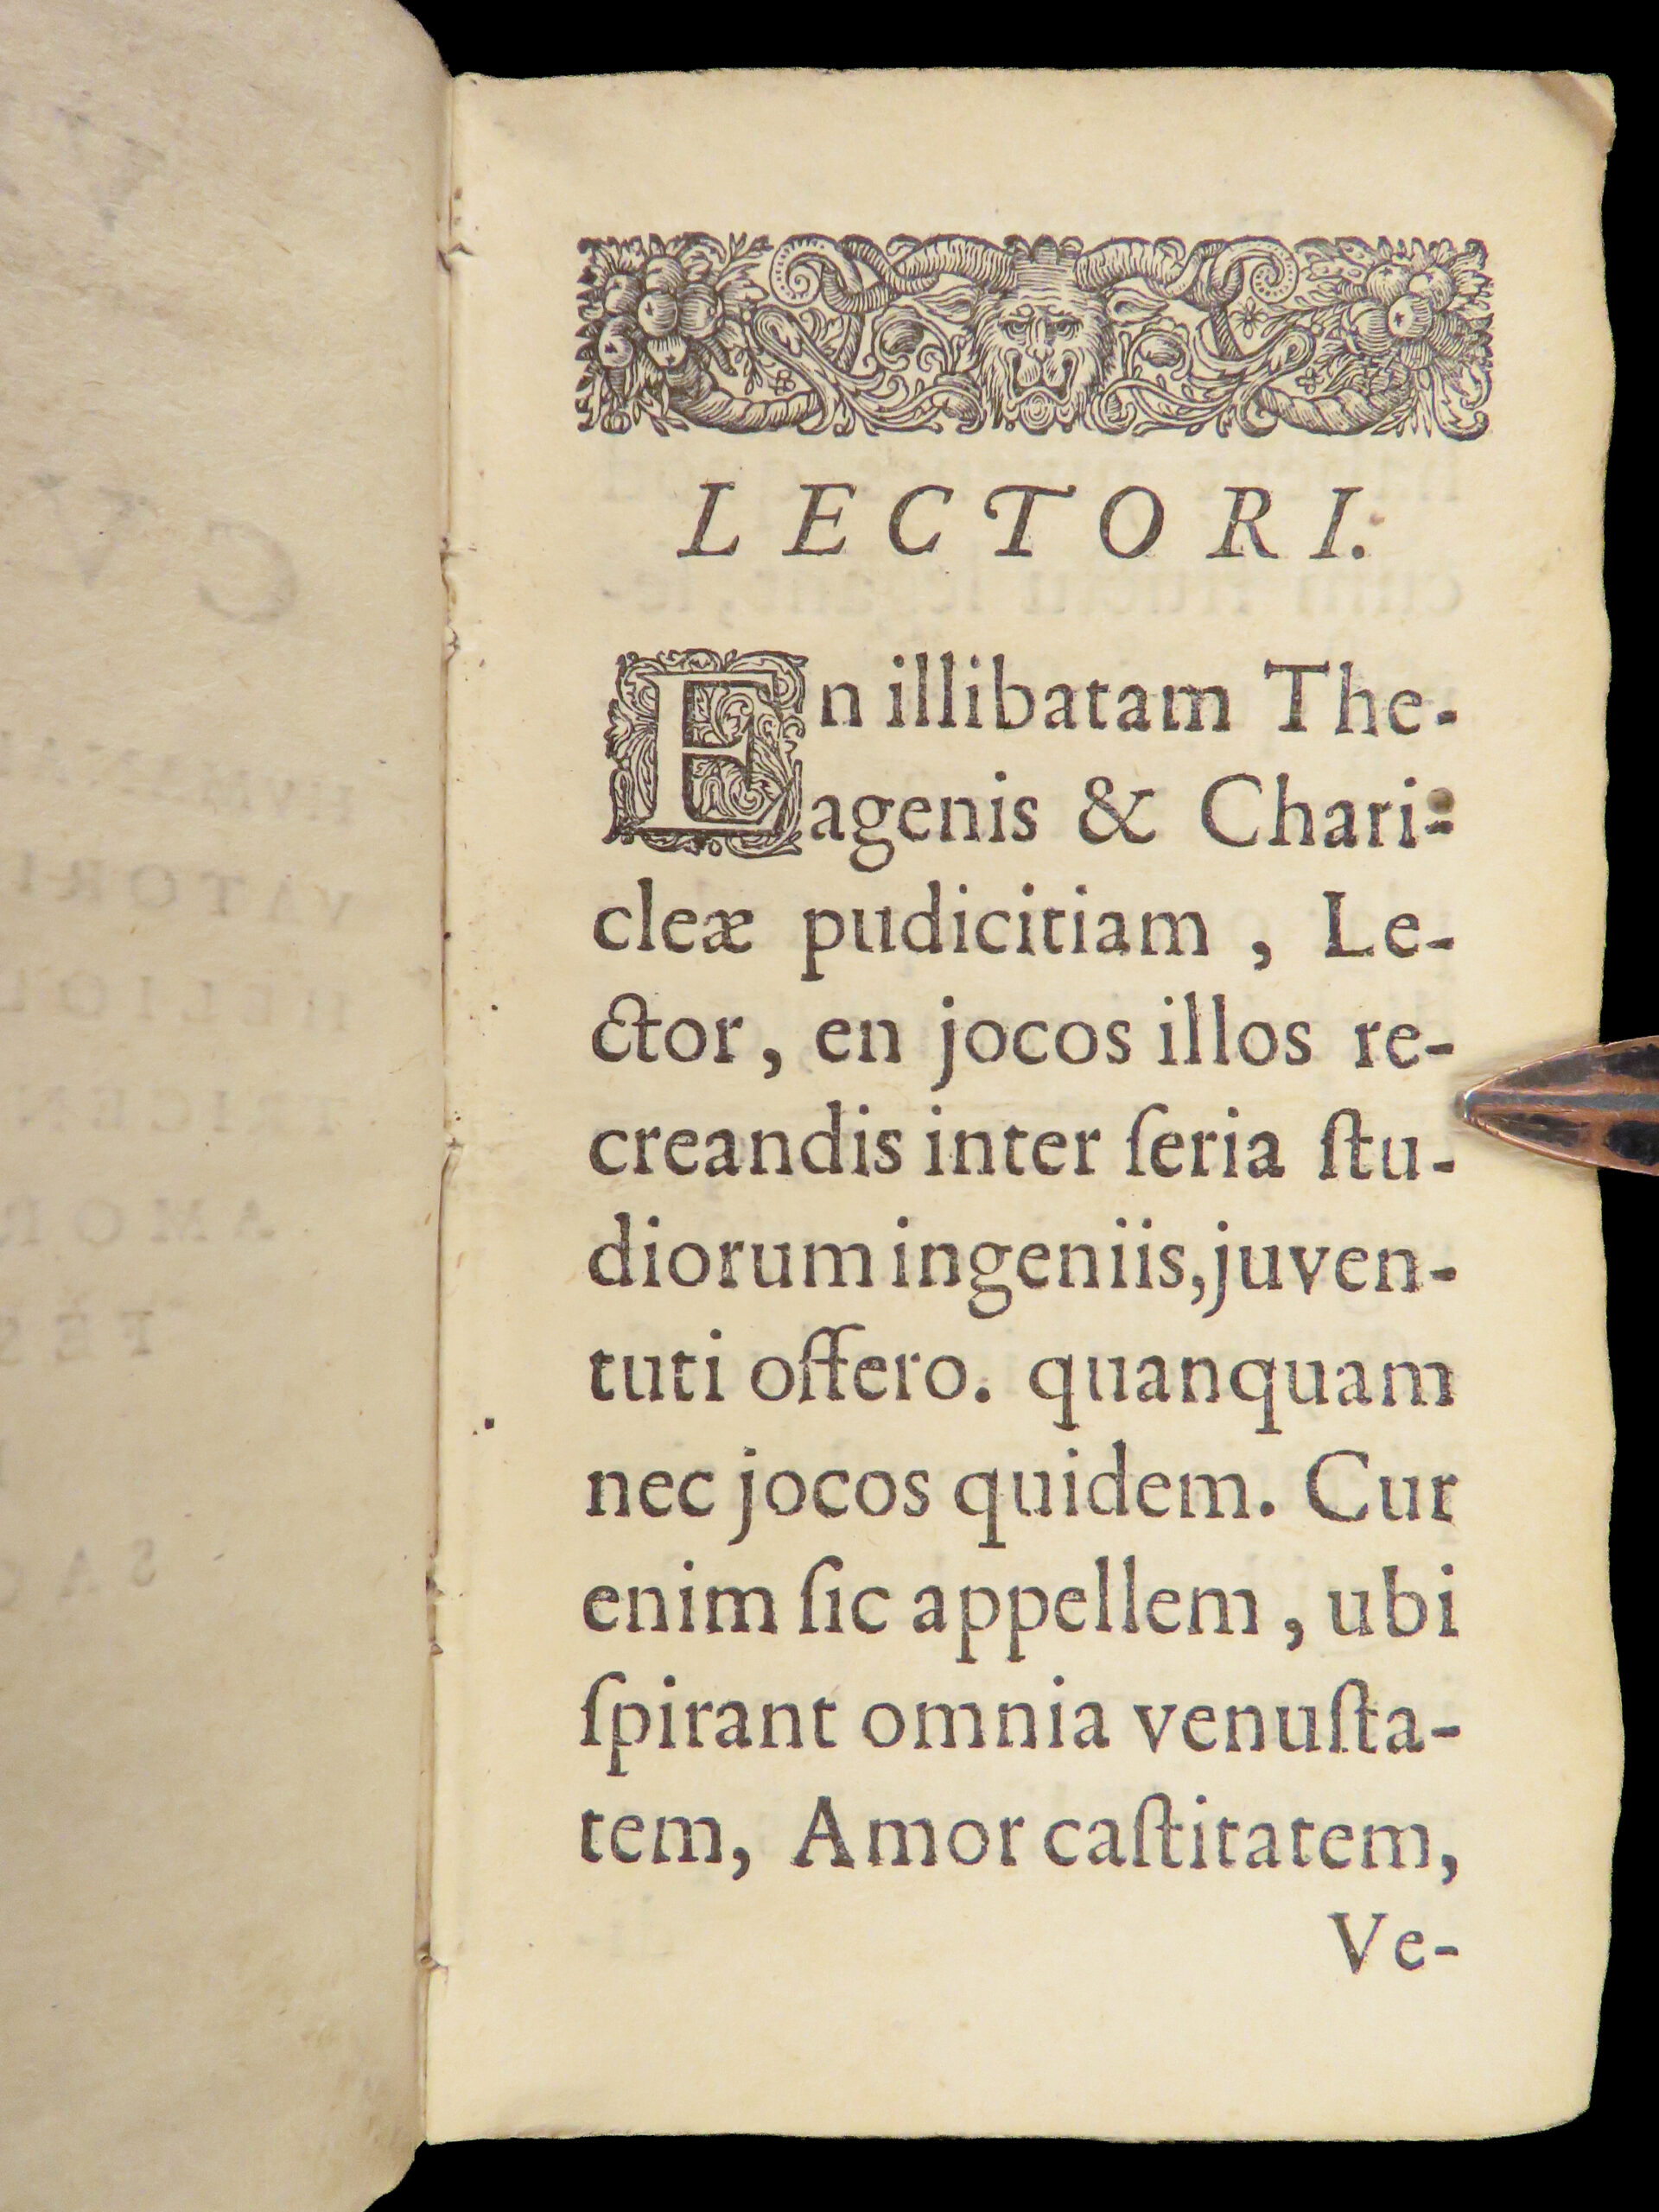 LECTORI.
En illibatam The-
agenis & Chari-
cleæ pudicitiam , Le-
ctor, en jocos illos re-
creandis inter ſeria ſtu-
diorum ingeniis, juven-
tuti offero. quanquam
nec jocos quidem. Cur
enim ſic appellem , ubi
ſpirant omnia venuſta-
tem, Amor caſtitatem,
Ve-